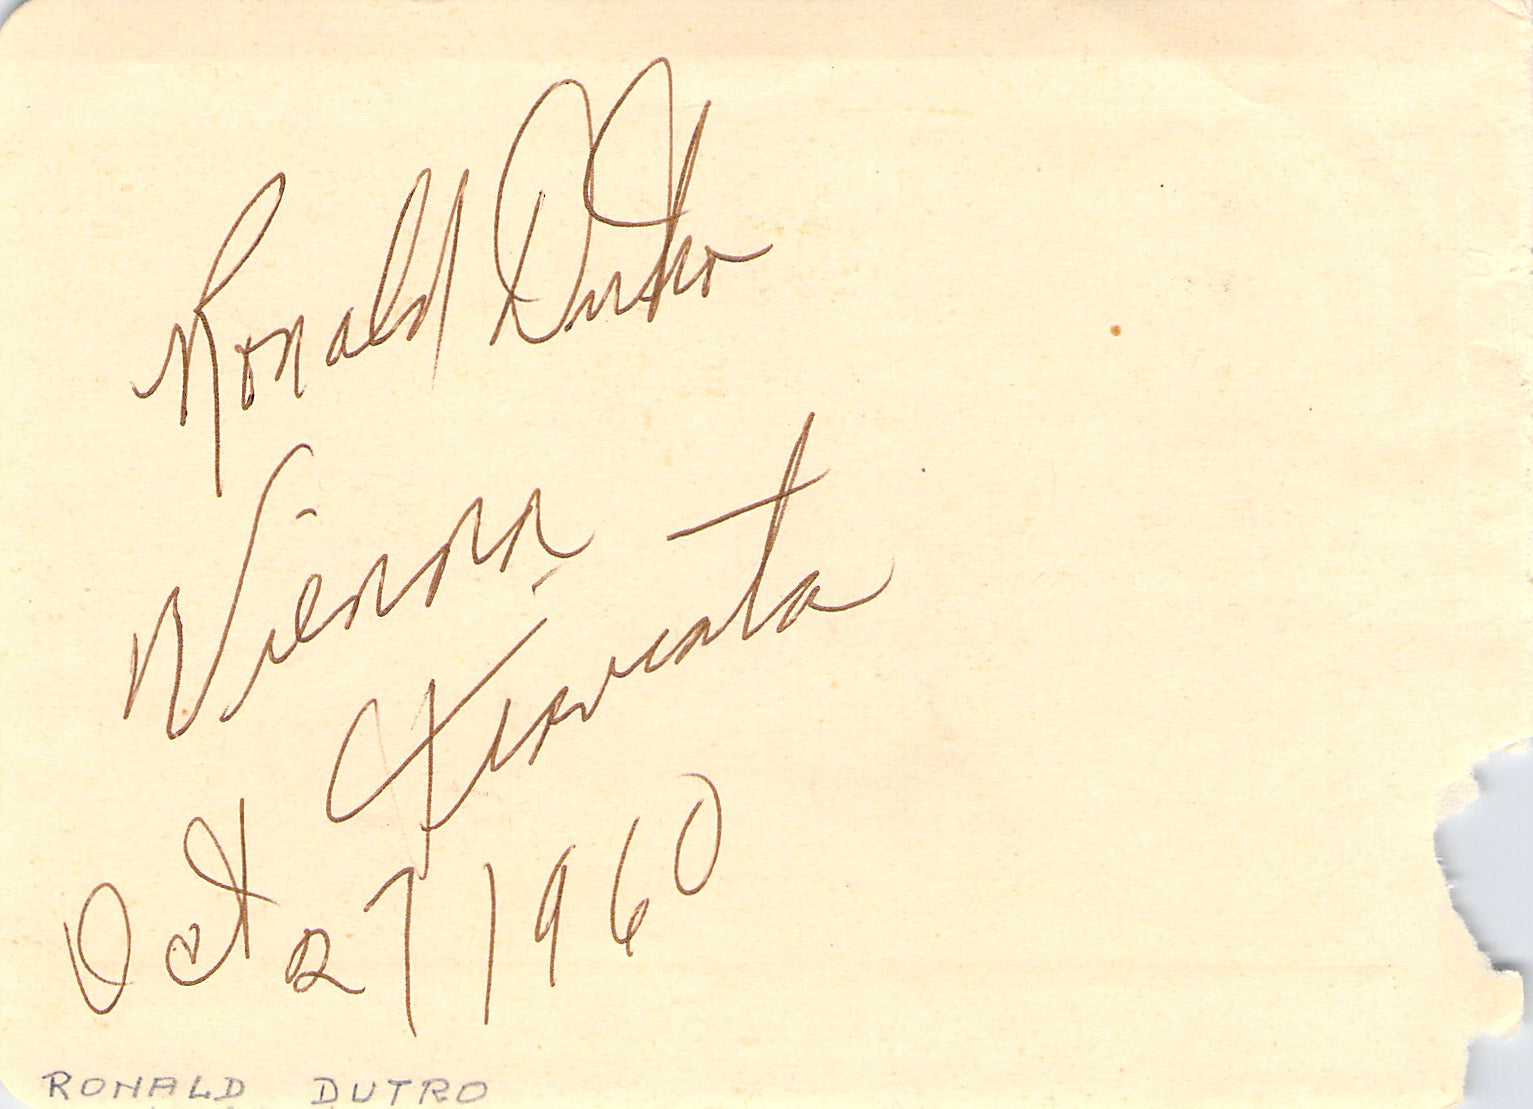 Ronald Dutro
Vienna
Traviata
Oct 27 1960
RONALD DUTRO